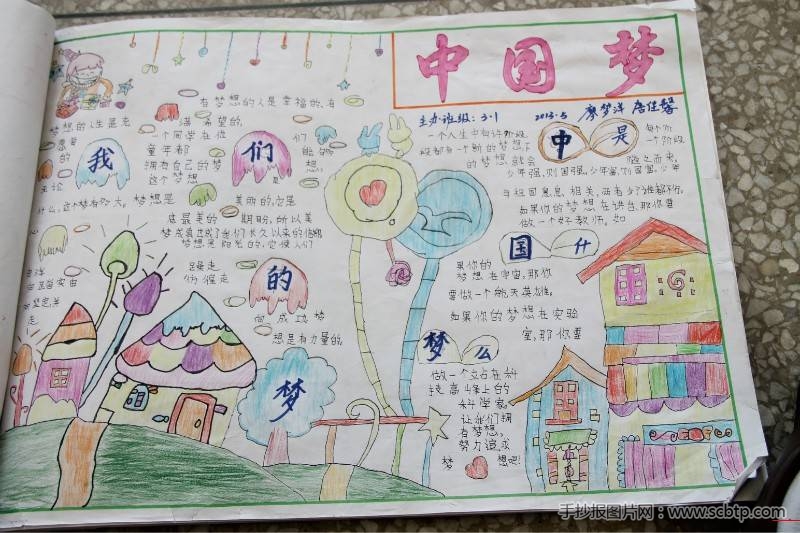 中国梦
主办班级：3·1 2013.5 廖梦洋 唐佳馨
有梦想的人是幸福的，有
梦想的人生是充满希望的，
一个同学在
童年都
拥有自己的梦想，
这个梦想
我们
什么，这个梦有多大，梦想是美丽的，它是
最美的期盼，所以美
梦成真也成了我们长久以来的信仰
梦想是阳光的，它使人们
躁走
仿徨走
的
向成功，梦
想是有力量的
梦
一个人生中有许阶段，每个阶
段都有一个新的梦想，
的梦想就会随之而来，
少年强，则国强，少年富，则国富，少年
与祖国息息相关，两者少了谁都不行，
如果你的梦想在讲台，那你要
做一个好教师。如
中是
国什
果你的
梦想在宇宙，那你
要做一个航天英雄，
如果你的梦想在实验
室，那你要
梦么
做一个立占在科
技高峰上的
科学家
让我们拥
有梦想，
努力追求
梦想吧！
手抄报图片网：www.scbtp.com